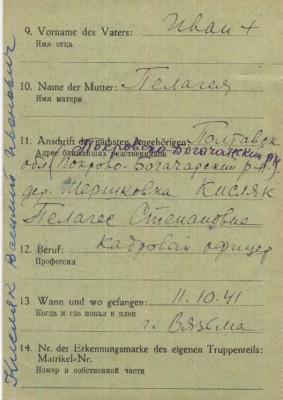 Кисляк Василий Иванович
9. Vorname des Vaters: Иван +
Имя отца
10. Name der Mutter: Пелагея
Имя матери
11. Anschrift der nächsten Angehörigen: Полтавск
Адрес ближайших родственников Покровско-Богачанский р-н
обл. (Покрово-Богачарский р-н)
дер. Шершковка Кисляк
Пелагее Степановне
12. Beruf: кадровый офицер
Профессия
13 Wann und wo gefangen: 11.10.41
Когда и где попал в плен г. Вязьма
14. Nr. der Erkennungsmarke des eigenen Truppenteils:
Matrikel-Nr.
Номер в собственной части